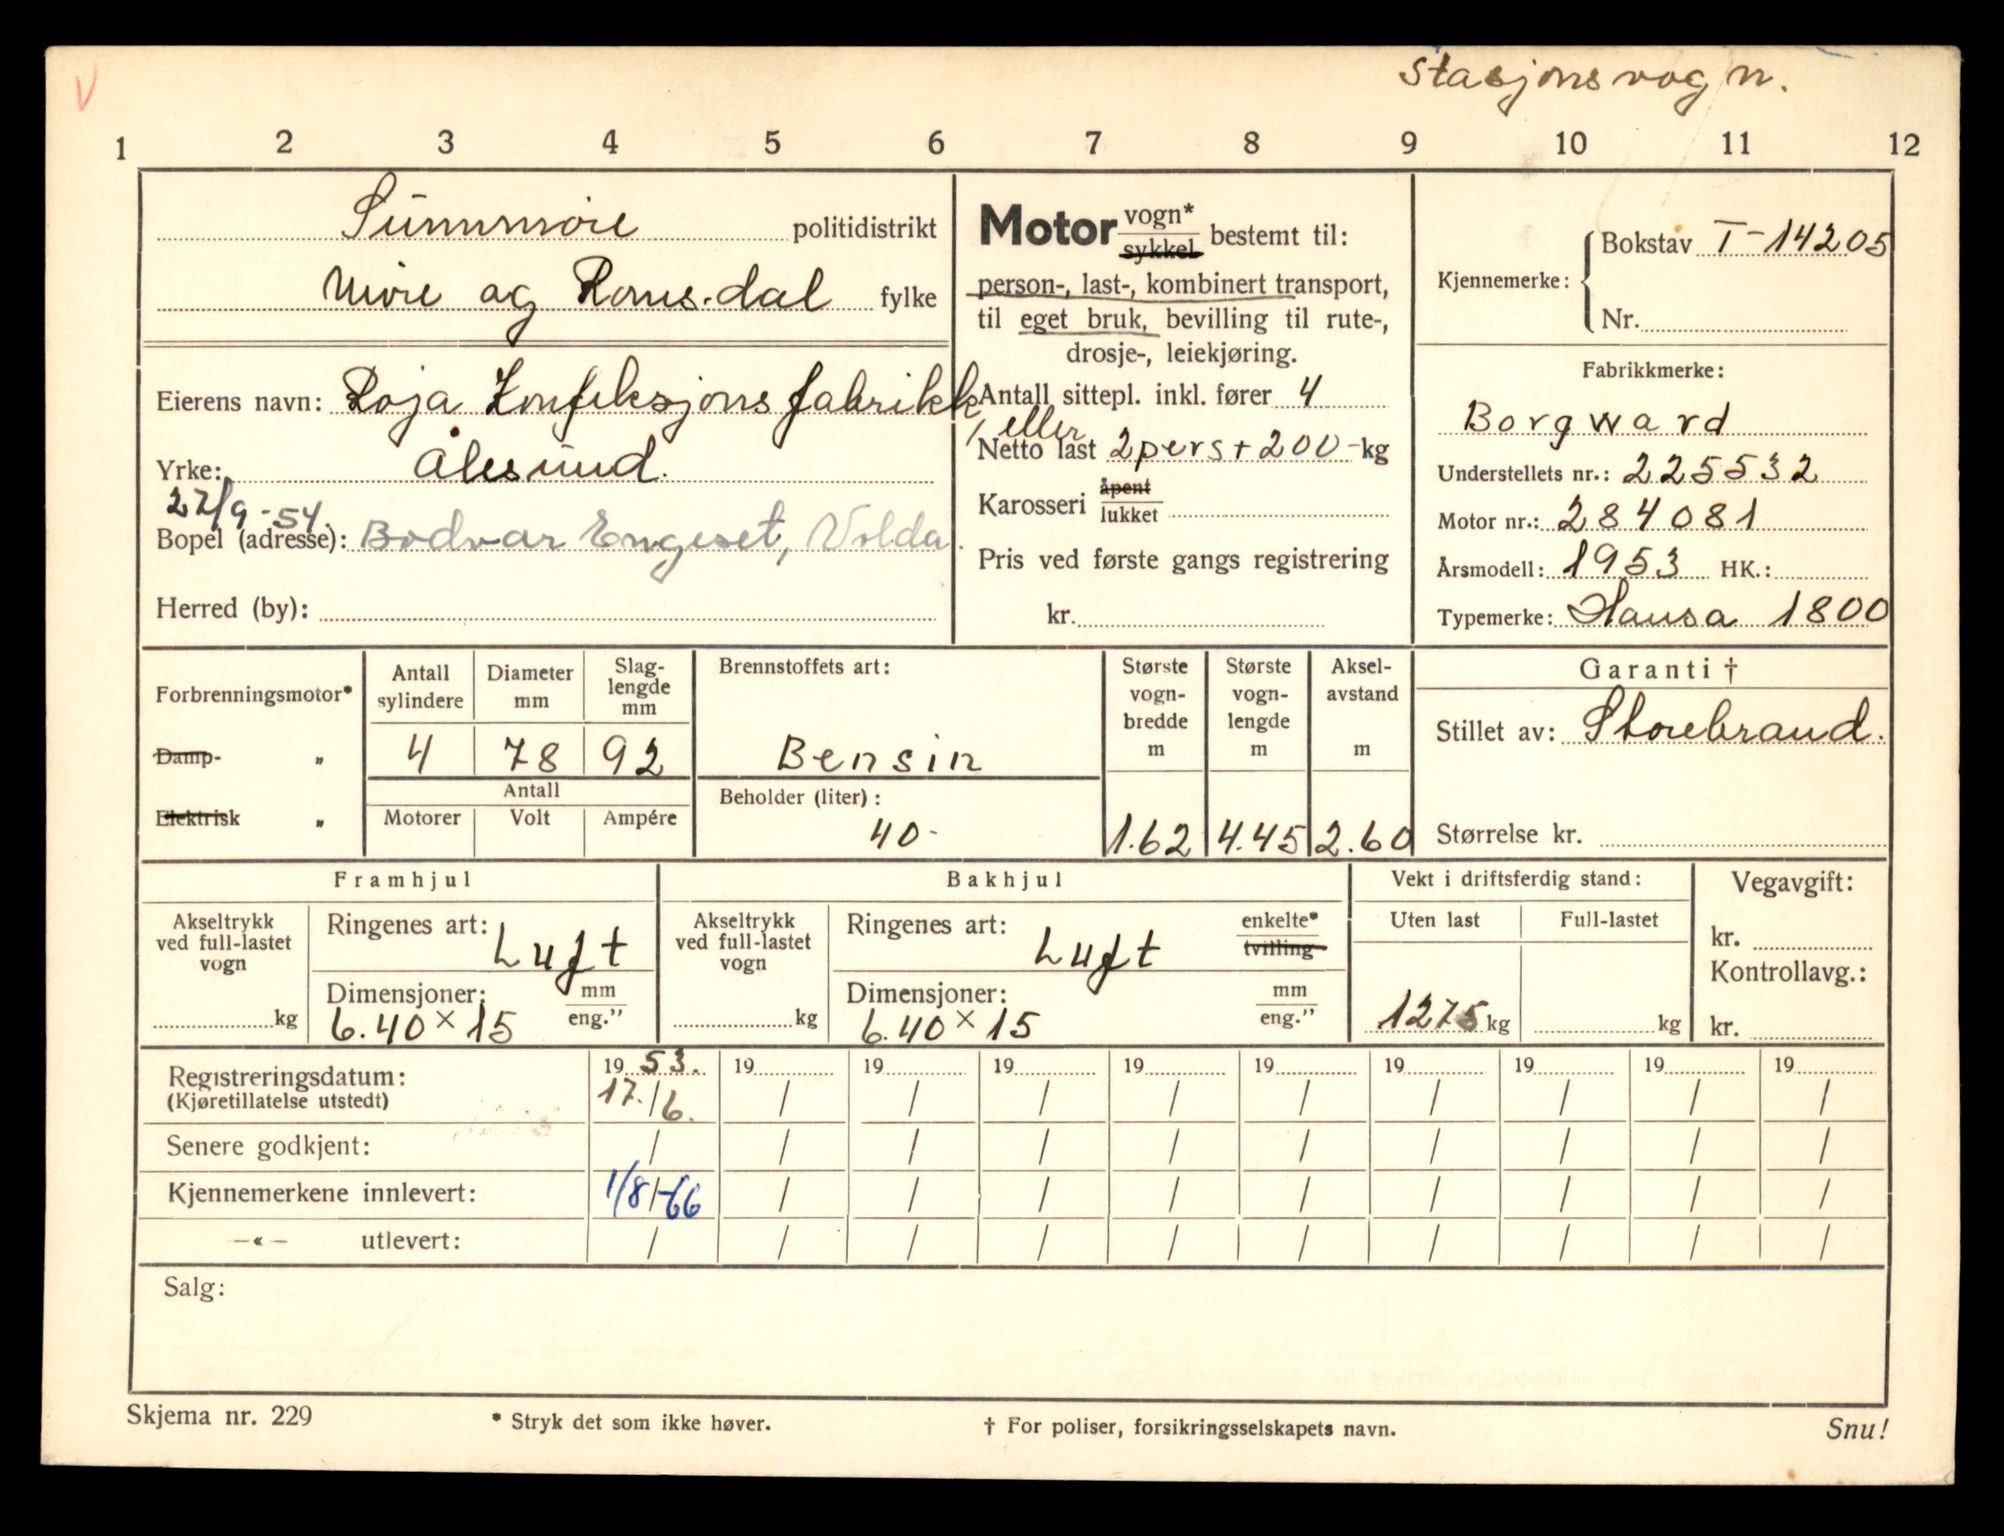 V
Stasjonsvogn.
1 2 3 4 5 6 7 8 9 10 11 12
Sunnmøre politidistrikt
Møre og Romsdal fylke
Eierens navn: Roja Konfeksjonsfabrikk,
Yrke: Ålesund.
27/9-54.
Bopel (adresse): Bodvar Engeset, Volda.
Herred (by):
Motor vogn* sykkel bestemt til:
person-, last-, kombinert transport,
til eget bruk, bevilling til rute-,
drosje-, leiekjøring.
Antall sittepl. inkl. fører 4
eller
Netto last 2 pers + 200- kg
Karosseri åpent lukket
Pris ved første gangs registrering
kr.
Kjennemerke: Bokstav T-14205
Nr.
Fabrikkmerke:
Borgward
Understellets nr.: 225532
Motor nr.: 284081
Årsmodell: 1953 HK.:
Typemerke: Hansa 1800
Forbrenningsmotor*
Damp- „
Elektrisk „
Antall sylindere
Diameter mm
Slaglengde mm
4 78 92
Antall
Motorer Volt Ampére
Brennstoffets art:
Bensin
Beholder (liter):
40-
Største vogn-bredde m
1.62
Største vogn-lengde m
4.45
Aksel-avstand m
2.60
Garanti †
Stillet av: Storebrand.
Størrelse kr.
Framhjul
Akseltrykk ved full-lastet vogn
kg
Ringenes art: Luft
Dimensjoner: mm eng."
6.40 × 15
Bakhjul
Akseltrykk ved full-lastet vogn
kg
Ringenes art: Luft enkelte* tvilling
Dimensjoner: mm eng."
6.40 × 15
Vekt i driftsferdig stand:
Uten last Full-lastet
1275 kg kg
Vegavgift:
kr.
Kontrollavg.:
kr.
19 53. 19 19 19 19 19 19 19 19 19
Registreringsdatum: 17./6. / / / / / / / / /
(Kjøretillatelse utstedt)
Senere godkjent: / / / / / / / / / /
Kjennemerkene innlevert: 1/8-66 / / / / / / / / /
—«— utlevert: / / / / / / / / / /
Salg:
Skjema nr. 229
* Stryk det som ikke høver.
† For poliser, forsikringsselskapets navn.
Snu!